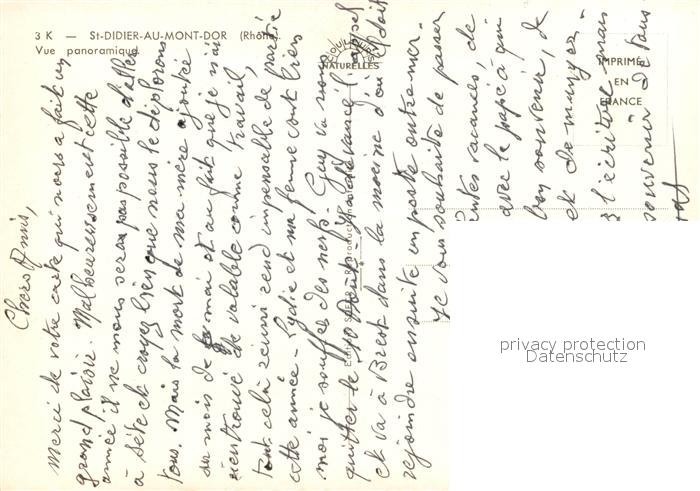 3 K — St-DIDIER-AU-MONT-DOR (Rhône)
Vue panoramique
COULEURS
NATURELLES
IMPRIMÉ
EN
FRANCE
Chers Amis,
Merci de votre carte qui nous a fait un
grand plaisir. Malheureusement cette
année il ne nous sera pas possible d'aller
à Sète et croyez bien que nous le déplorons
tous. Mais la mort de ma mère ajoutée
au mois de mai et au fait que je n'ai
rien trouvé de valable comme travail,
tout cela réuni rend impensable de partir
cette année - Lydie et ma femme vont bien
moi je souffre des nerfs. Guy va nous
quitter le
et va à Brest dans la marine d'où il doit
rejoindre ensuite un poste outre mer.
Je vous souhaite de passer
vacances, de
avec le papé à qui
bon souvenir, de
et de manger -
l'écriture mais
souvenir de tous
privacy protection
Datenschutz